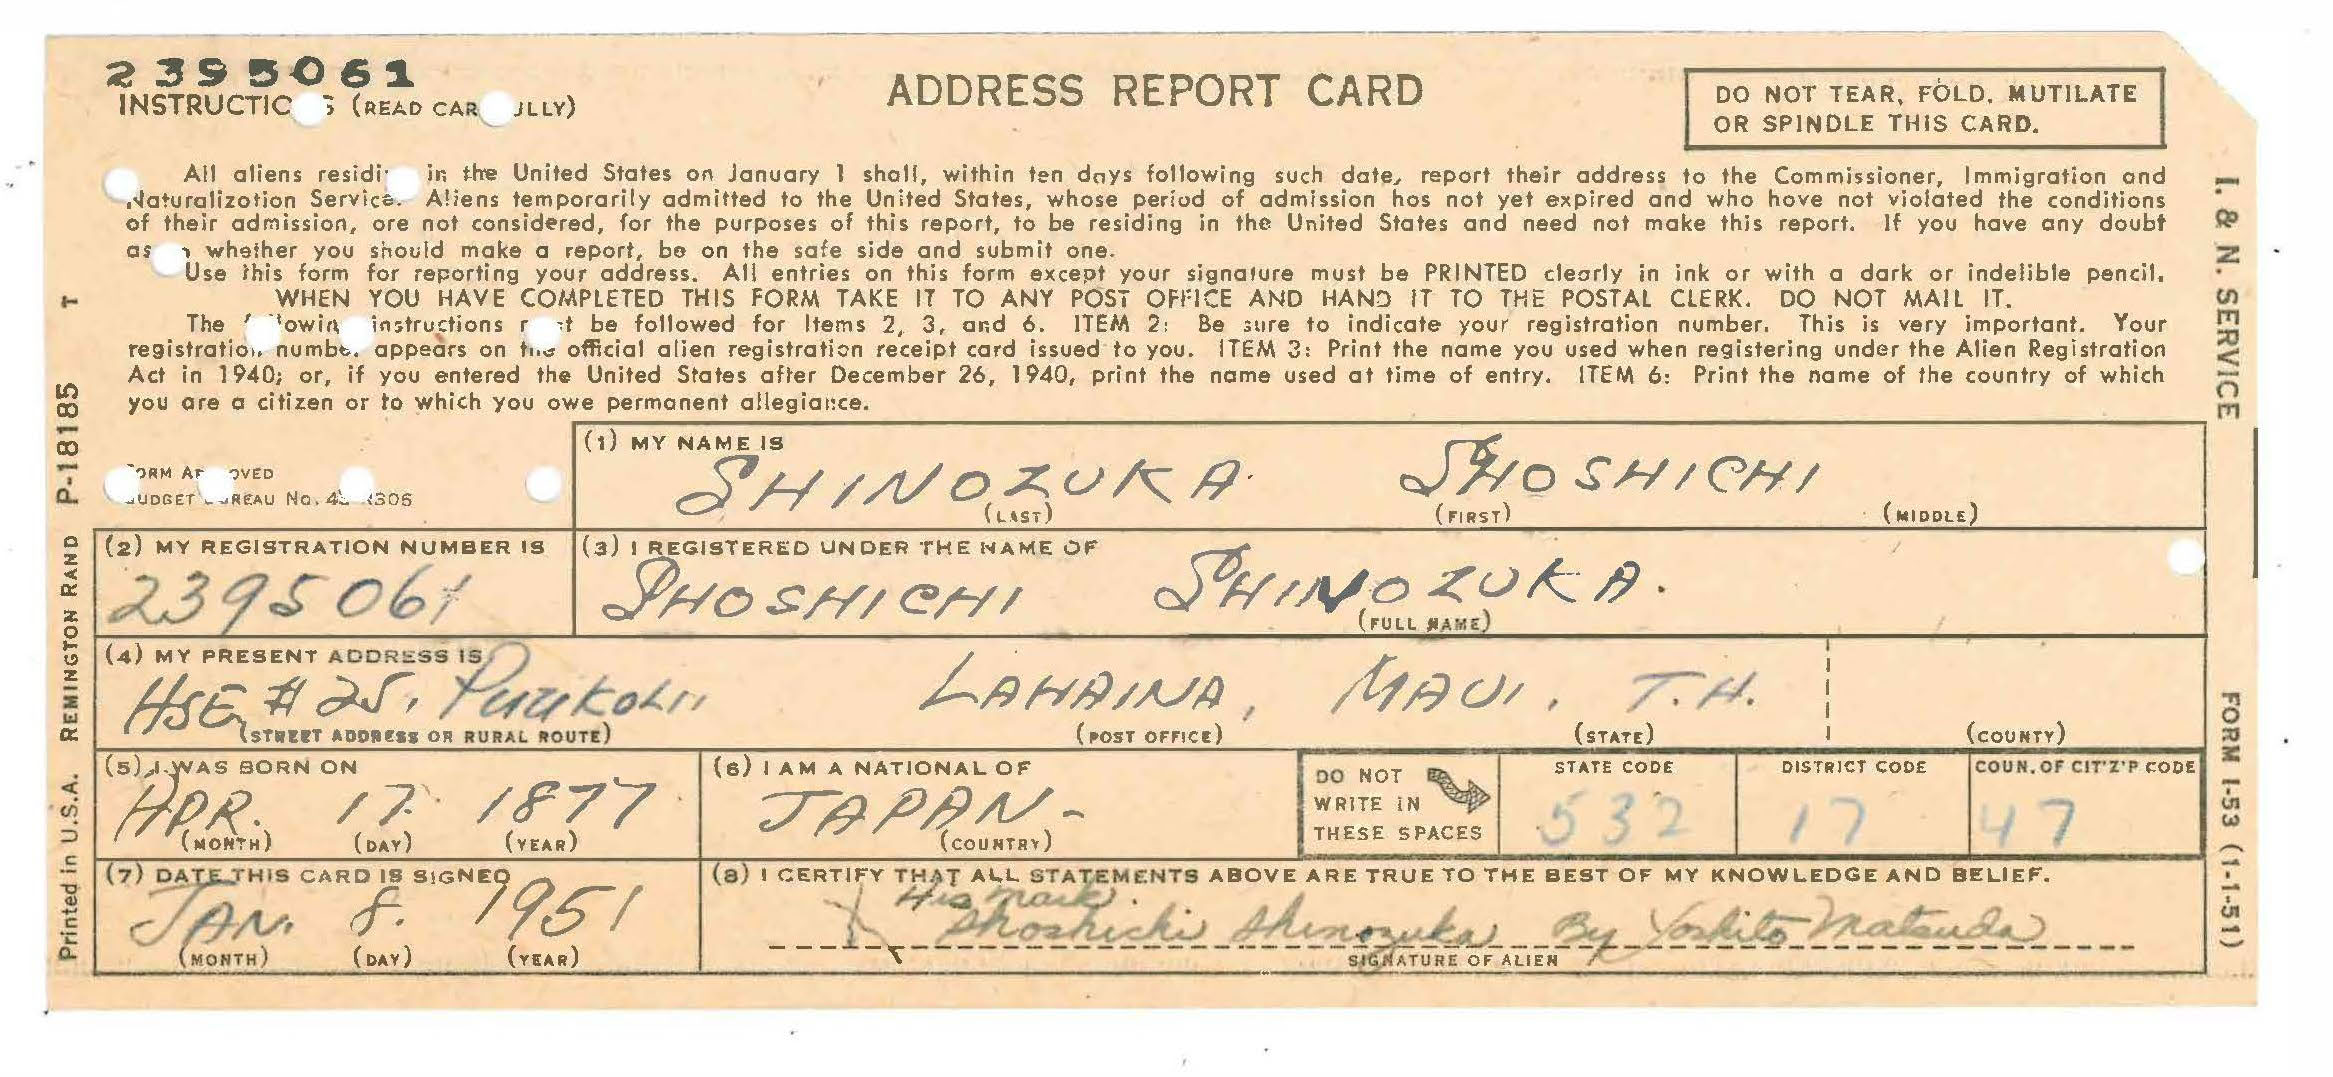 2395061
INSTRUCTIONS (READ CAREFULLY)
ADDRESS REPORT CARD
DO NOT TEAR, FOLD, MUTILATE
OR SPINDLE THIS CARD.
All aliens residing in the United States on January 1 shall, within ten days following such date, report their address to the Commissioner, Immigration and
Naturalization Service. Aliens temporarily admitted to the United States, whose period of admission has not yet expired and who have not violated the conditions
of their admission, are not considered, for the purposes of this report, to be residing in the United States and need not make this report. If you have any doubt
as to whether you should make a report, be on the safe side and submit one.
Use this form for reporting your address. All entries on this form except your signature must be PRINTED clearly in ink or with a dark or indelible pencil.
WHEN YOU HAVE COMPLETED THIS FORM TAKE IT TO ANY POST OFFICE AND HAND IT TO THE POSTAL CLERK. DO NOT MAIL IT.
The following instructions must be followed for Items 2, 3, and 6. ITEM 2: Be sure to indicate your registration number. This is very important. Your
registration number appears on the official alien registration receipt card issued to you. ITEM 3: Print the name you used when registering under the Alien Registration
Act in 1940; or, if you entered the United States after December 26, 1940, print the name used at time of entry. ITEM 6: Print the name of the country of which
you are a citizen or to which you owe permanent allegiance.
FORM APPROVED
BUDGET BUREAU No.
(1) MY NAME IS
SHINOZUKA SHOSHICHI
(LAST) (FIRST) (MIDDLE)
(2) MY REGISTRATION NUMBER IS
2395061
(3) I REGISTERED UNDER THE NAME OF
SHOSHICHI SHINOZUKA.
(FULL NAME)
(4) MY PRESENT ADDRESS IS
HSE # 25, Puukolii LAHAINA, MAUI, T.H.
(STREET ADDRESS OR RURAL ROUTE) (POST OFFICE) (STATE) (COUNTY)
(5) I WAS BORN ON
APR. 17. 1877
(MONTH) (DAY) (YEAR)
(6) I AM A NATIONAL OF
JAPAN-
(COUNTRY)
DO NOT
WRITE IN
THESE SPACES
STATE CODE
532
DISTRICT CODE
17
COUN. OF CIT'Z'P CODE
47
(7) DATE THIS CARD IS SIGNED
JAN. 8. 1951
(MONTH) (DAY) (YEAR)
(8) I CERTIFY THAT ALL STATEMENTS ABOVE ARE TRUE TO THE BEST OF MY KNOWLEDGE AND BELIEF.
His mark.
X Shoshichi Shinozuka By Yoshito Matsuda
SIGNATURE OF ALIEN
Printed in U.S.A. REMINGTON RAND P-18185 T
I. & N. SERVICE
FORM I-53 (1-1-51)